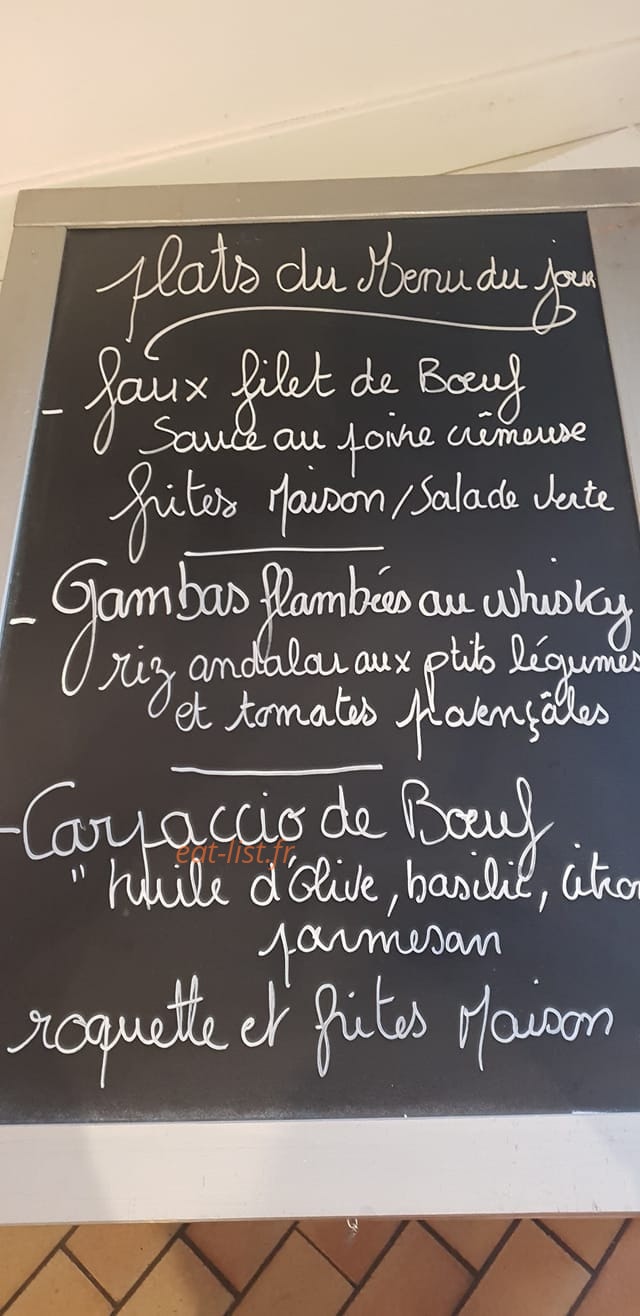 plats du Menu du jour
- faux filet de Bœuf
Sauce au poivre crêmeuse
frites Maison/Salade verte
- Gambas flambées au whisky
riz andalou aux ptits légumes
et tomates provençâles
- Carpaccio de Bœuf
eat-list.fr
" huile d'olive, basilic, citron
parmesan
roquette et frites Maison